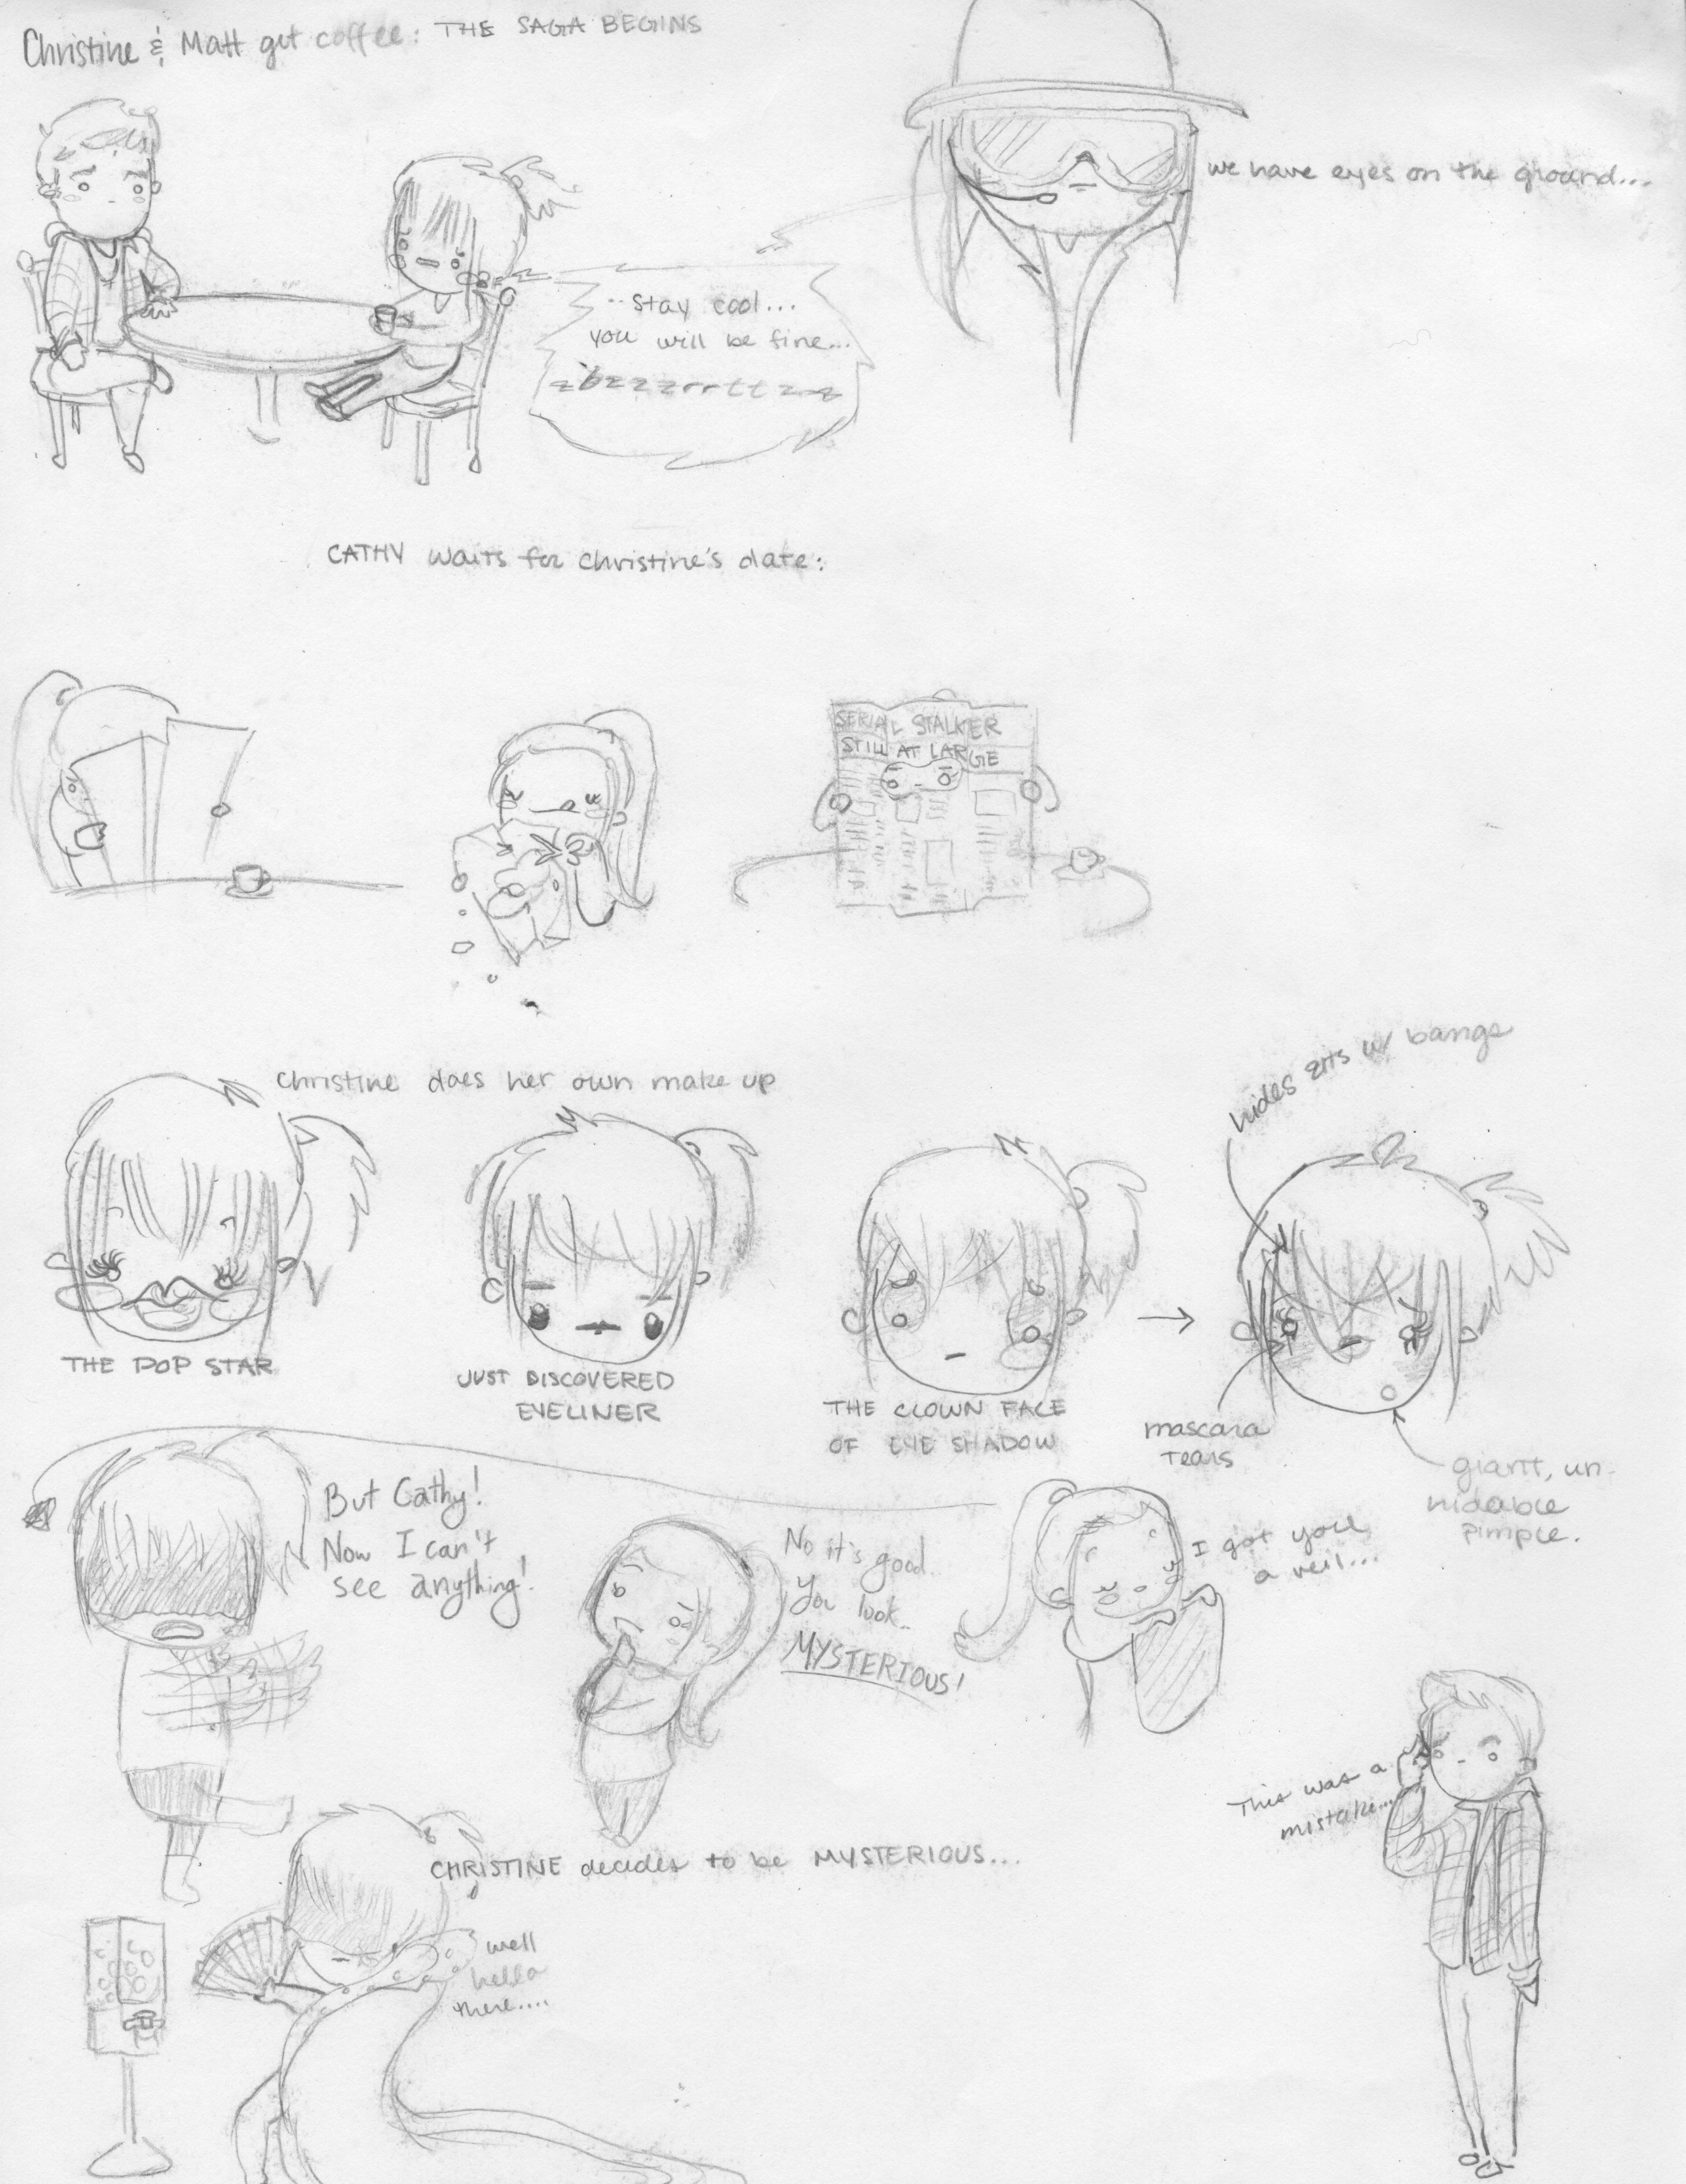 Christine & Matt get coffee: THE SAGA BEGINS
we have eyes on the ground...
..stay cool...
you will be fine...
zbzzzzrrttzzz
CATHY waits for christine's date:
SERIAL STALKER
STILL AT LARGE
christine does her own make up
hides zits w/ bangs
THE POP STAR
JUST DISCOVERED
EYELINER
THE CLOWN FACE
OF EYE SHADOW
mascara
tears
giant, un-
hideable
pimple.
But Cathy!
Now I can't
see anything!
No it's good..
You look..
MYSTERIOUS!
I got you
a veil...
This was a
mistake...
CHRISTINE decides to be MYSTERIOUS...
well
hello
there....